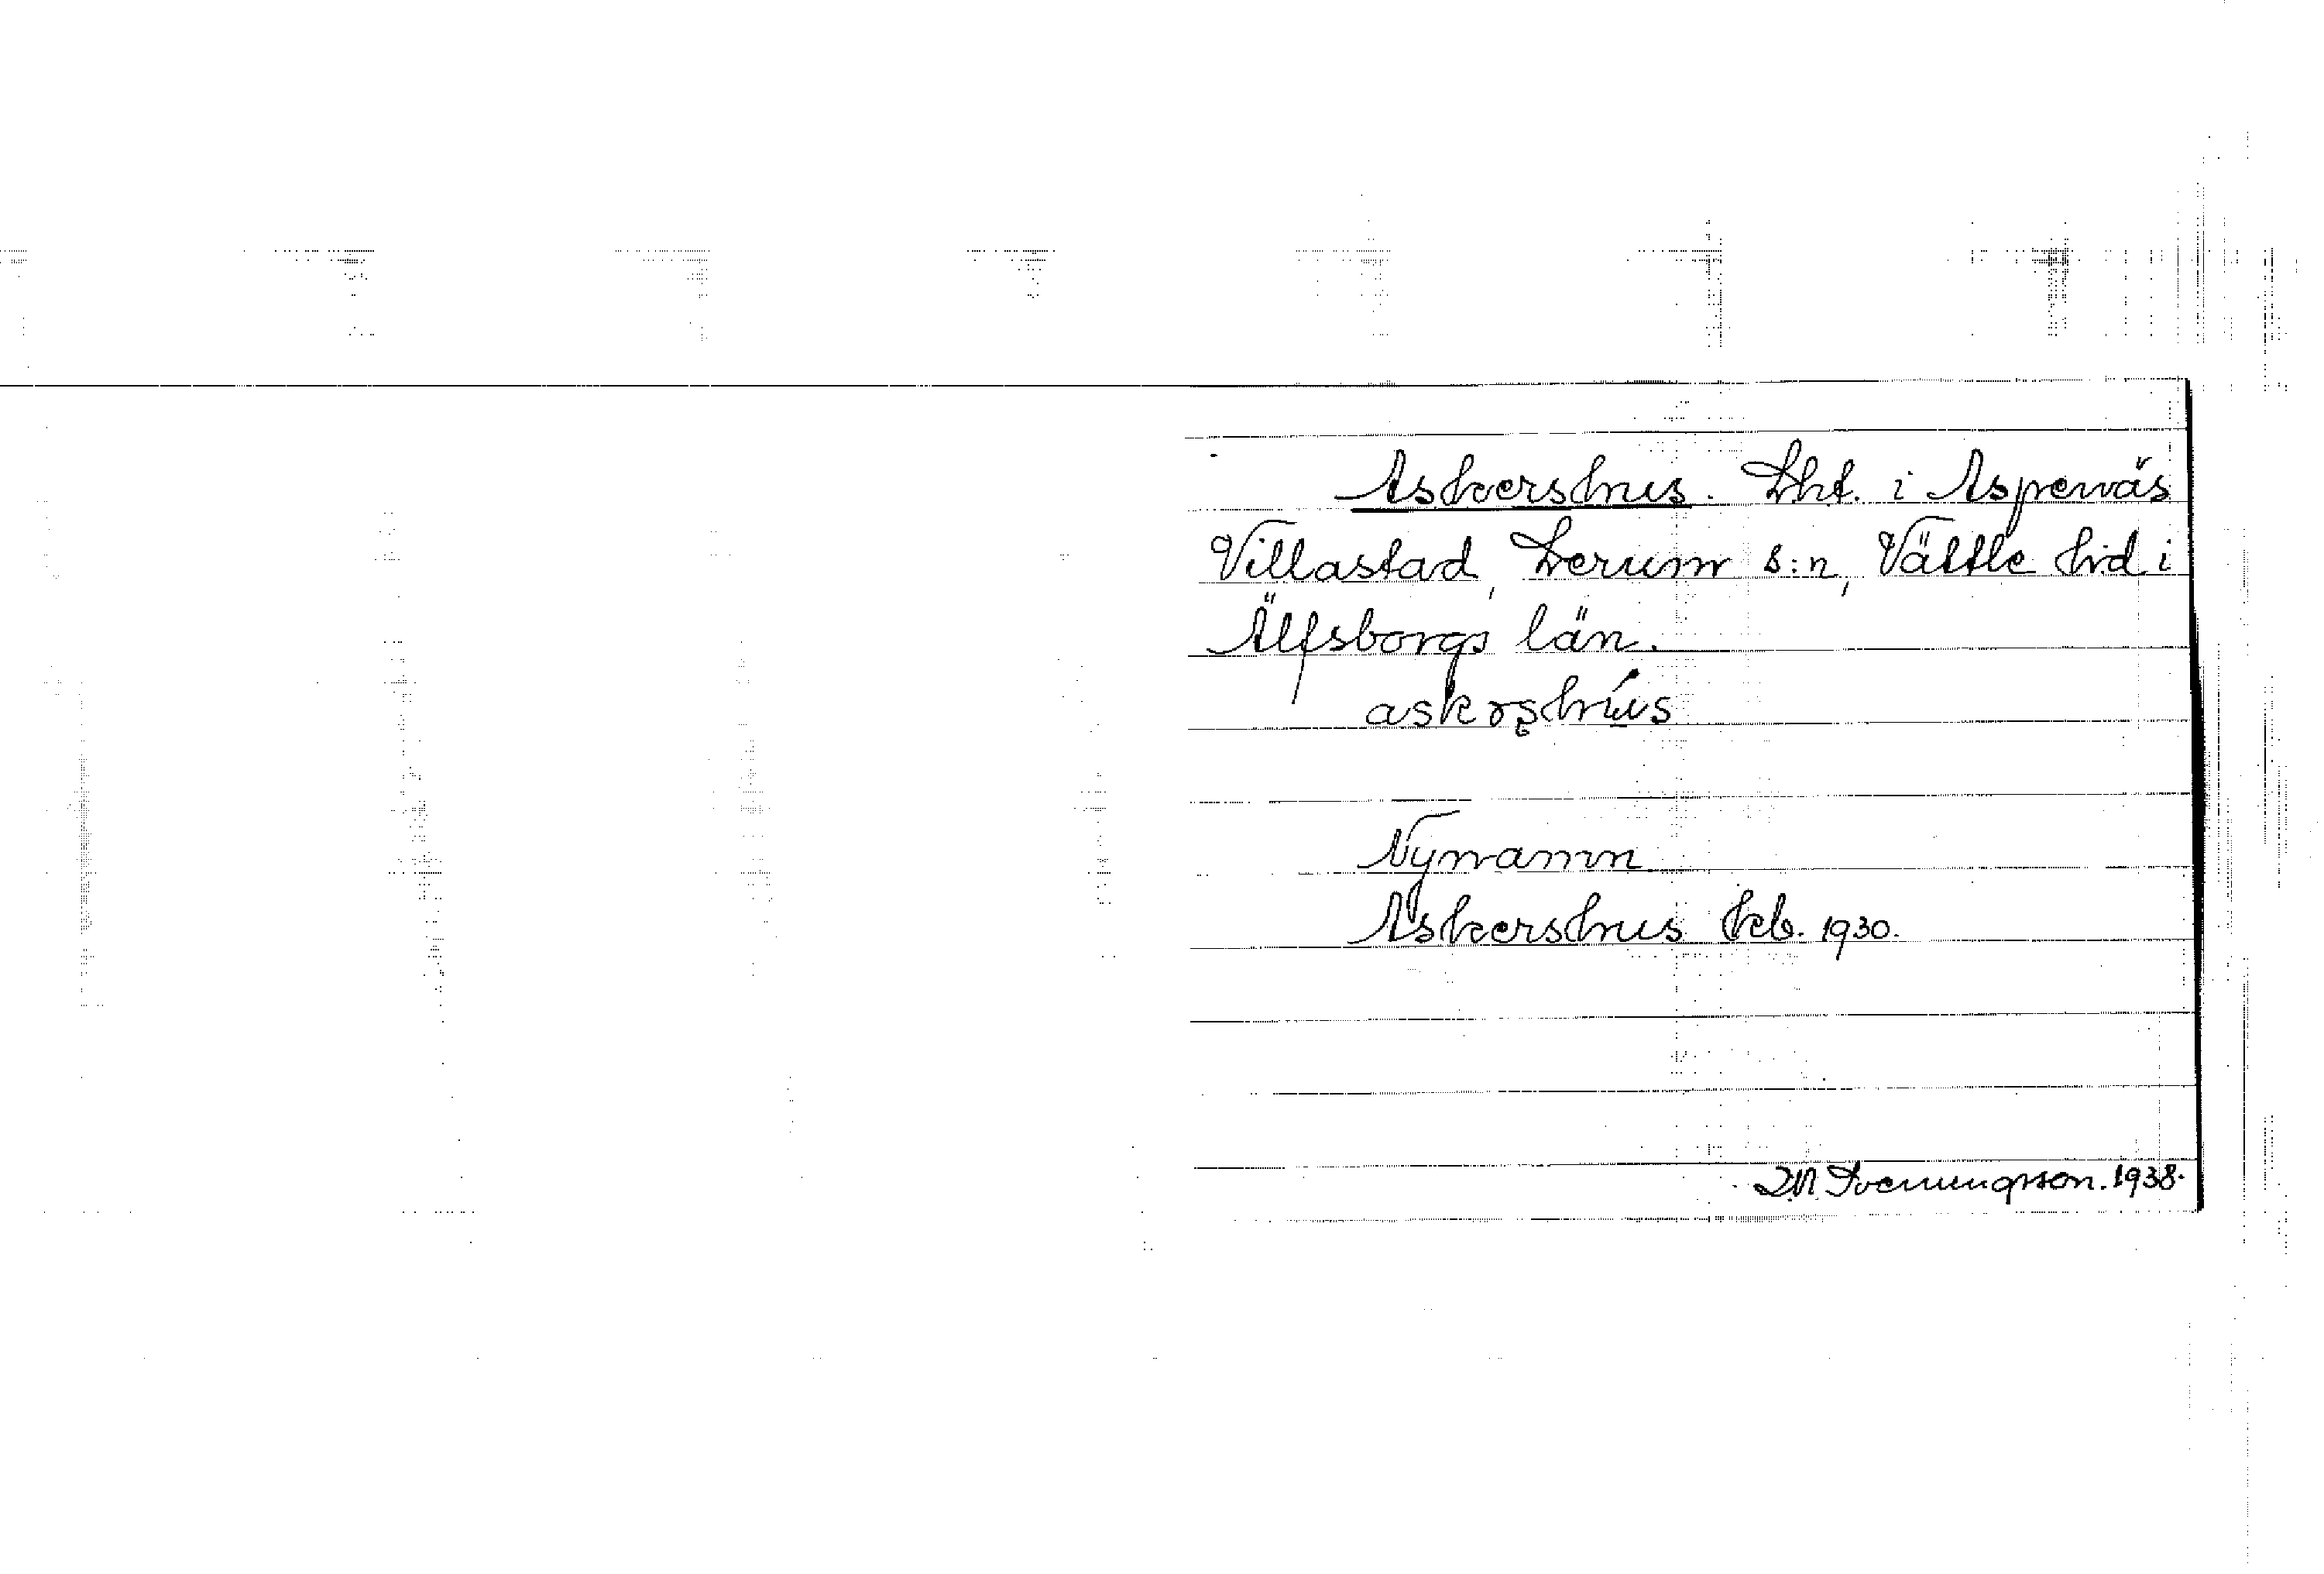 Askershus. Lht. i Aspenäs
Villastad, Lerum s:n, Vättle hd i
Älfsborgs län.
askərshus
Nynamn
Askershus Jreb. 1930.
Svenningsson. 1938.